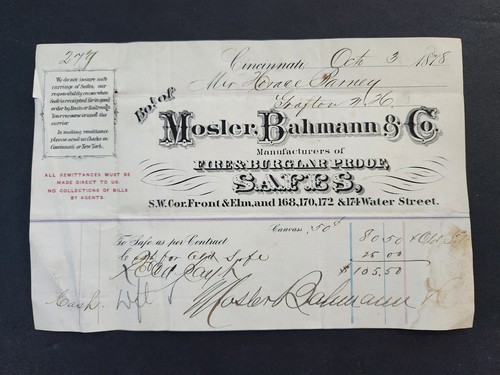 279
Cincinnati Oct 3 1878
Mr Horace Parney
Grafton N.H.
Bot of
Mosler, Bahmann & Co.
Manufacturers of
FIRE & BURGLAR PROOF
SAFES,
S.W. Cor. Front & Elm, and 168, 170, 172 & 174 Water Street.
We do not insure safe
carriage of Safes, our
responsibility ceases when
Safe is receipted for in good
order by Boats or Railroads.
Your recourse is and the
carrier
In making remittance
please send us Checks on
Cincinnati or New York.
ALL REMITTANCES MUST BE
MADE DIRECT TO US.
NO COLLECTIONS OF BILLS
BY AGENTS.
Canvass. 50
To Safe as per Contract
80 50 & Old Safe
for Old Safe
25 00
$ 105.50
Cash
Mosler Bahmann & Co